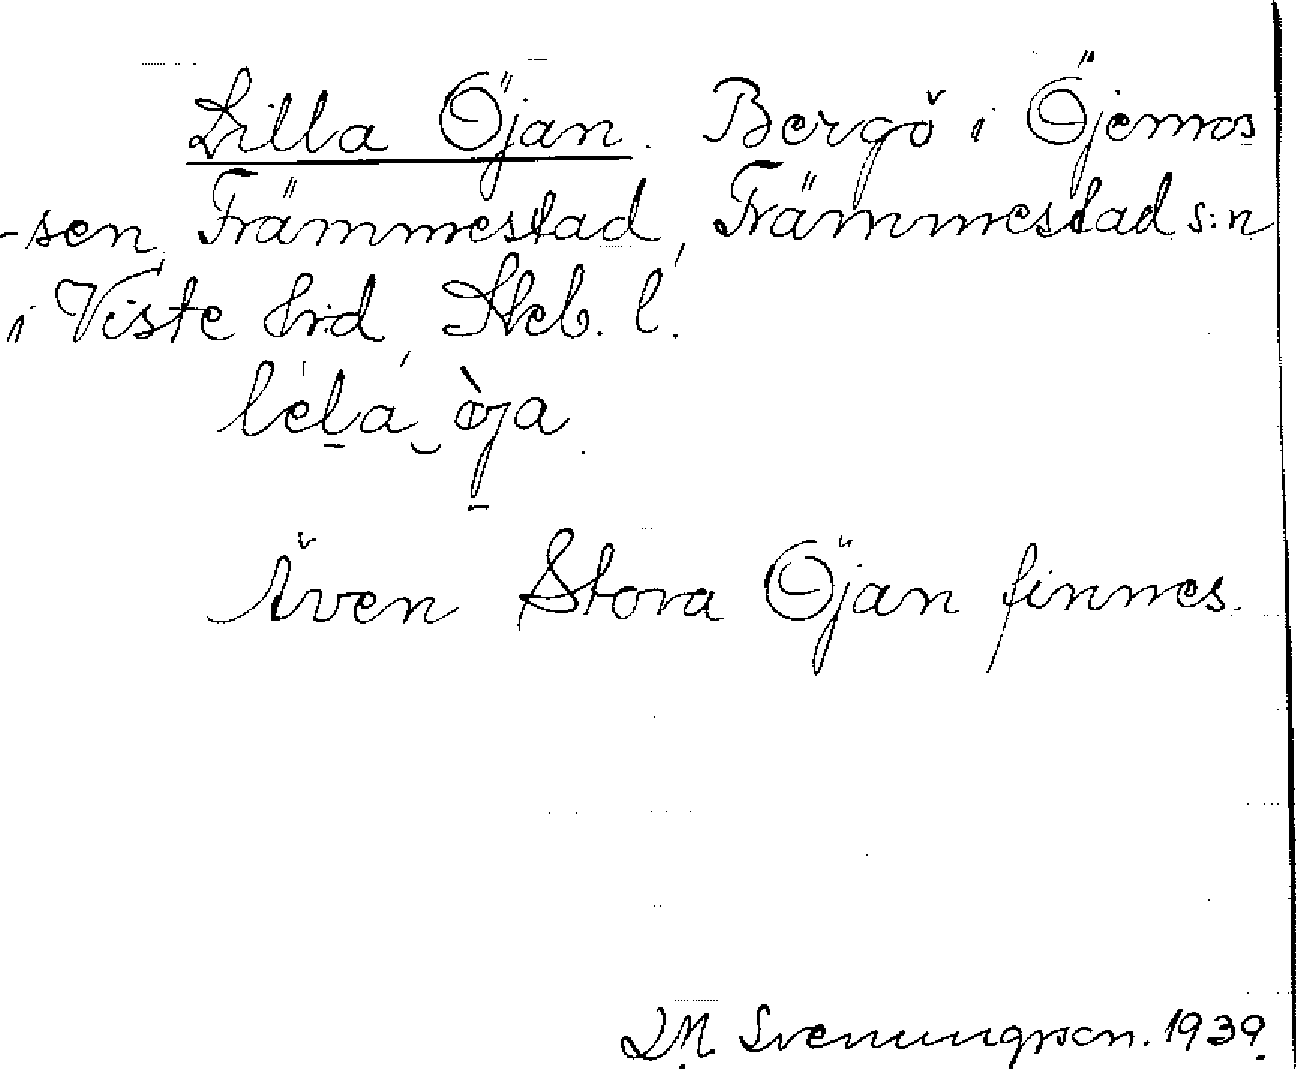 Lilla Öjan. Bergö i Öjemos
-sen, Främmestad, Främmestad s:n
i Viste hrd, Skb. l.
lela öja.
Även Stora Öjan finnes.
Svenungsson. 1939.